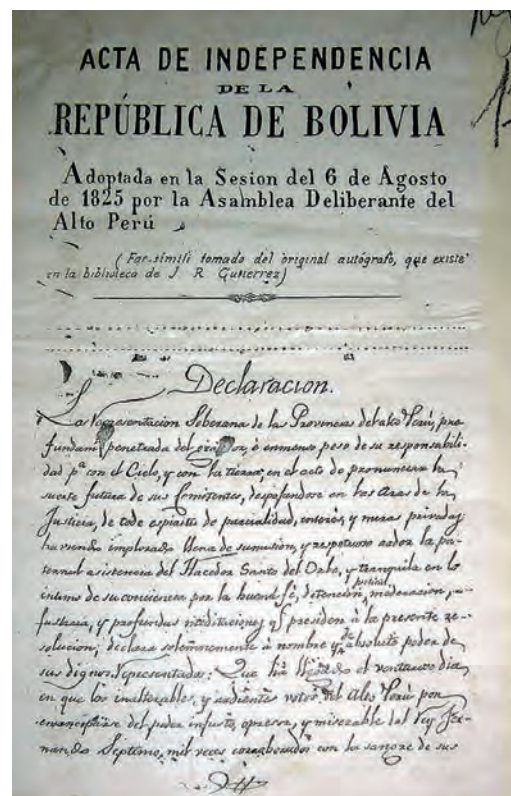 ACTA DE INDEPENDENCIA
DE LA
REPÚBLICA DE BOLIVIA
Adoptada en la Sesion del 6 de Agosto
de 1825 por la Asamblea Deliberante del
Alto Perú
(Far-simili tomado del original autógrafo, que existe
en la biblioteca de J. R. Gutierrez)
Declaracion.
La Representacion Soberana de las Provincias del alto Perú, pro
fundam penetrada del grandor, é inmenso peso de su responsabili-
dad pa con el Cielo, y con la tierra, en el acto de pronunciar la
suerte futura de sus Comitentes, despojandose en las Aras de la
Justicia, de todo espiritu de parcialidad, interes, y miras privadas;
haviendo implorado llena de sumision, y respetuoso ardor la pa-
ternal asistencia del Hacedor Santo del Orbe, y tranquila en lo
intimo de su conciencia por la buena fé, detencion, moderacion,
justicia, y profundas meditaciones qe presiden à la presente re-
solucion; declara solemnemente à nombre y absoluto poder de
sus dignos Representados: Que há llegado el venturoso dia
en que los inalterables, y ardientes votos del Alto Perú por
emanciparse del poder injusto, opresor, y miserable del Rey Fer-
nando Septimo, mil veces corroborados con la sangre de sus